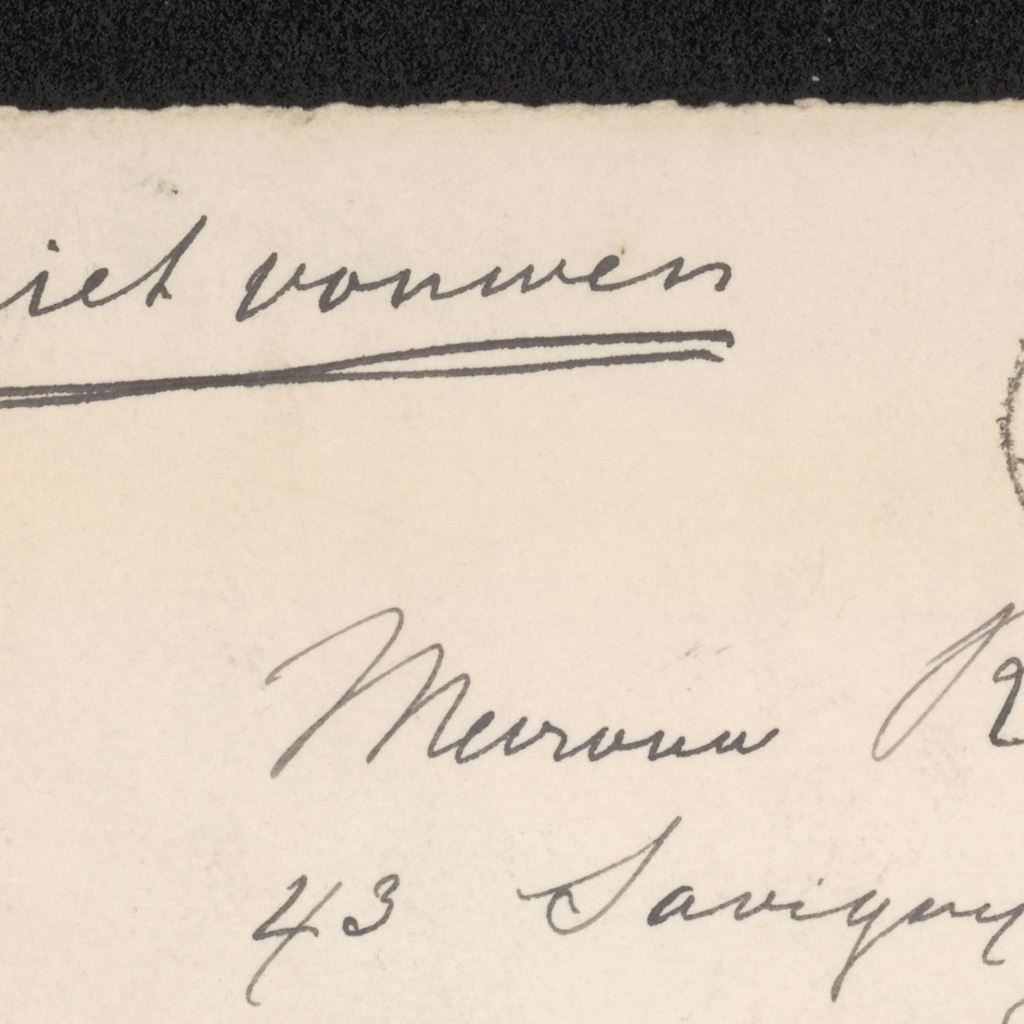 iet vouwen
Mevrouw R
43 Savigny